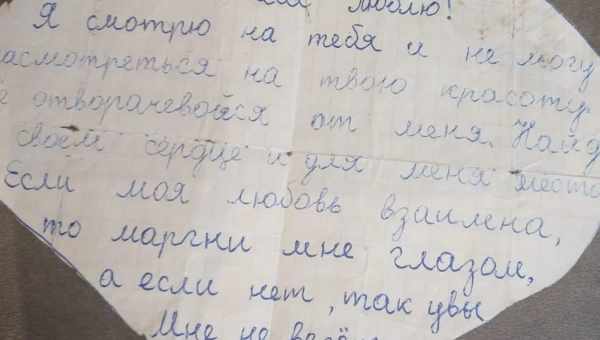 люблю!
Я смотрю на тебя и не могу
насмотреться на твою красоту.
отворачевойся от меня. Найди
своём сердце и для меня место
Если моя любовь взаимена,
то моргни мне глазом,
а если нет, так увы
Мне не